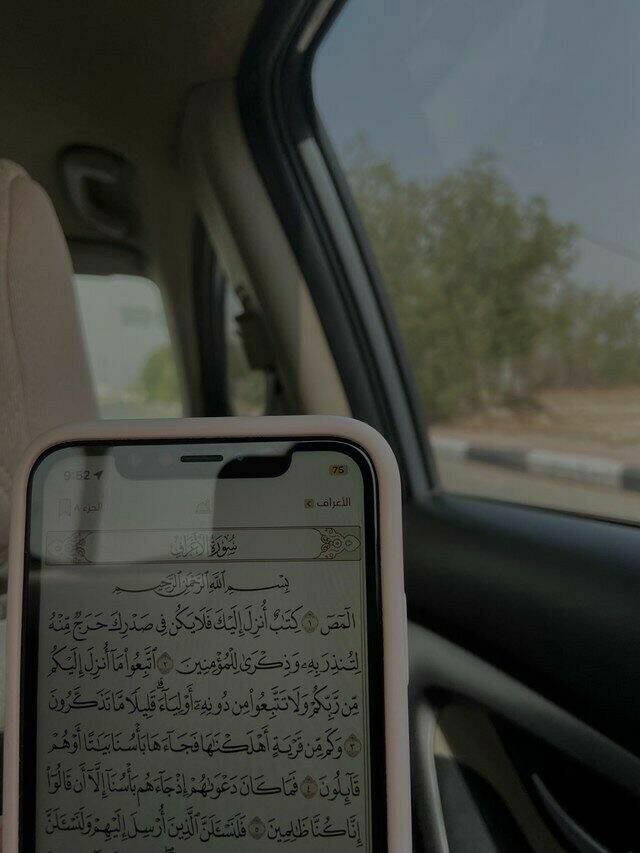 9:52 75
الأعراف الجزء ٨
سُورَةُ الأَعْرَافِ
بِسْمِ اللَّهِ الرَّحْمَٰنِ الرَّحِيمِ
الٓمٓصٓ ١ كِتَٰبٌ أُنزِلَ إِلَيْكَ فَلَا يَكُن فِى صَدْرِكَ حَرَجٌ مِّنْهُ
لِتُنذِرَ بِهِۦ وَذِكْرَىٰ لِلْمُؤْمِنِينَ ٢ ٱتَّبِعُوا۟ مَآ أُنزِلَ إِلَيْكُم
مِّن رَّبِّكُمْ وَلَا تَتَّبِعُوا۟ مِن دُونِهِۦٓ أَوْلِيَآءَ ۗ قَلِيلًا مَّا تَذَكَّرُونَ
٣ وَكَم مِّن قَرْيَةٍ أَهْلَكْنَٰهَا فَجَآءَهَا بَأْسُنَا بَيَٰتًا أَوْ هُمْ
قَآئِلُونَ ٤ فَمَا كَانَ دَعْوَىٰهُمْ إِذْ جَآءَهُم بَأْسُنَآ إِلَّآ أَن قَالُوٓا۟
إِنَّا كُنَّا ظَٰلِمِينَ ٥ فَلَنَسْـَٔلَنَّ ٱلَّذِينَ أُرْسِلَ إِلَيْهِمْ وَلَنَسْـَٔلَنَّ